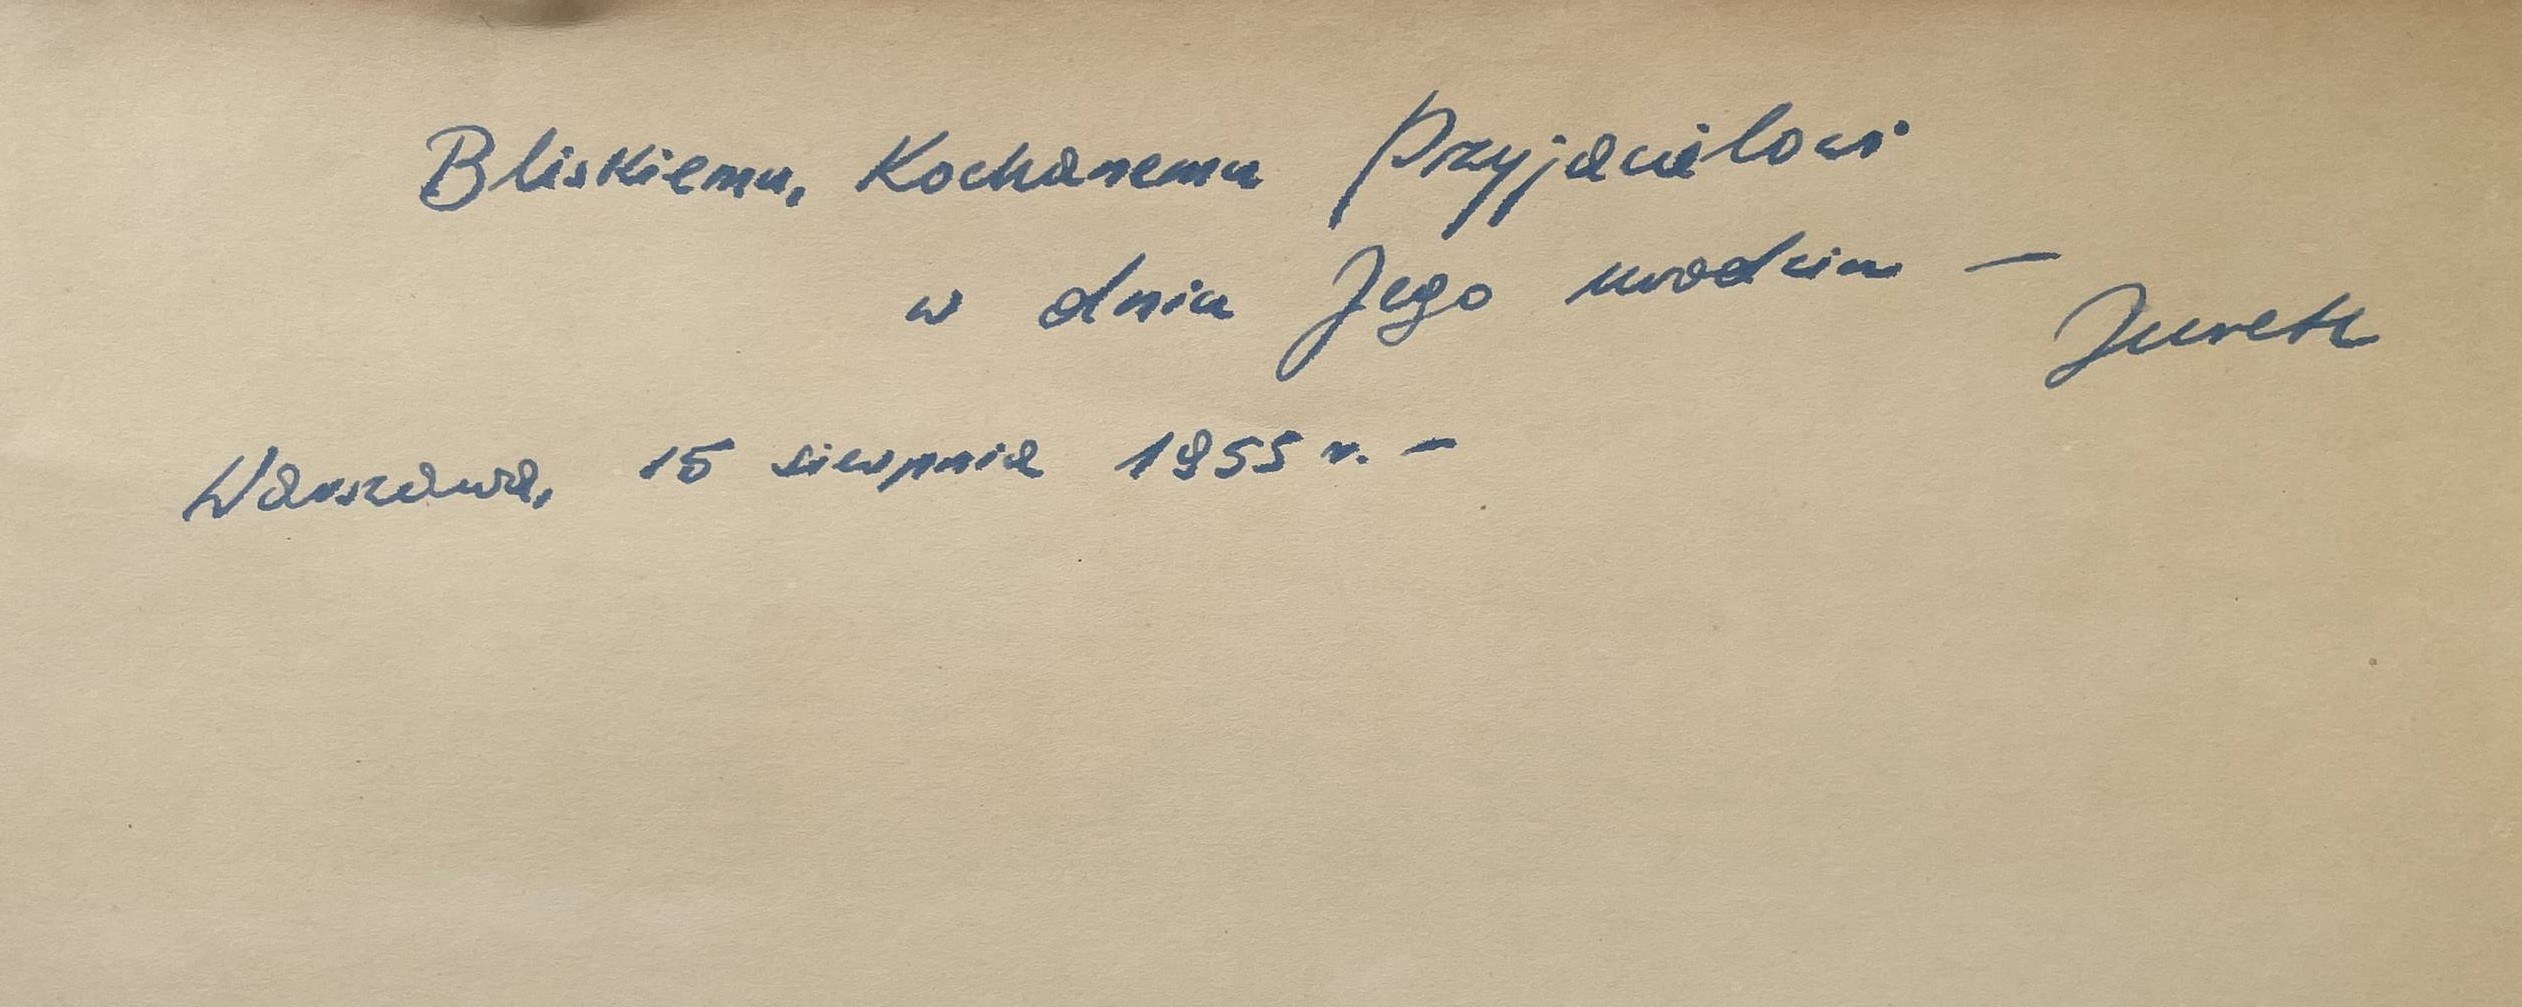 Bliskiemu, Kochanemu Przyjacielowi
w dniu Jego urodzin —
Jurek
Warszawa, 15 sierpnia 1955 r. —